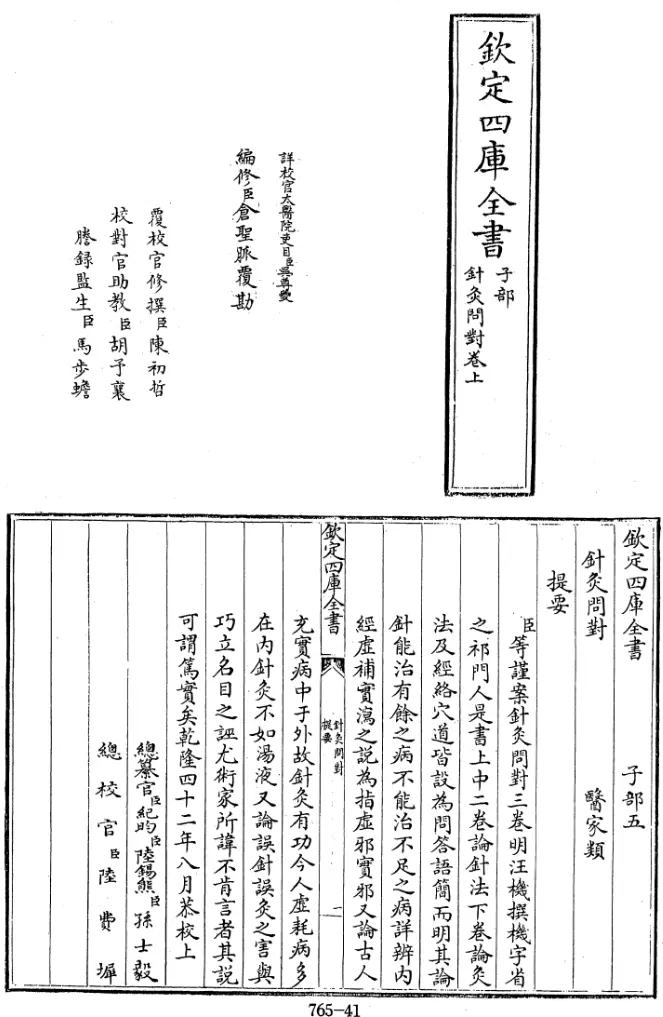 欽定四庫全書
子部
針灸問對卷上
詳校官太醫院吏目臣吳尊夔
編修臣倉聖脈覆勘
覆校官修撰臣陳初哲
校對官助教臣胡予襄
謄録監生臣馬步蟾
欽定四庫全書　子部五
針灸問對　醫家類
提要
臣等謹案針灸問對三卷明汪機撰機字省
之祁門人是書上中二卷論針法下卷論灸
法及經絡穴道皆設為問答語簡而明其論
針能治有餘之病不能治不足之病詳辨内
經虚補實瀉之説為指虚邪實邪又論古人
欽定四庫全書
針灸問對
提要
一
充實病中于外故針灸有功今人虚耗病多
在内針灸不如湯液又論誤針誤灸之害與
巧立名目之誣尤術家所諱不肯言者其説
可謂篤實矣乾隆四十二年八月恭校上
總纂官臣紀昀臣陸錫熊臣孫士毅
總校官臣陸費墀
765-41